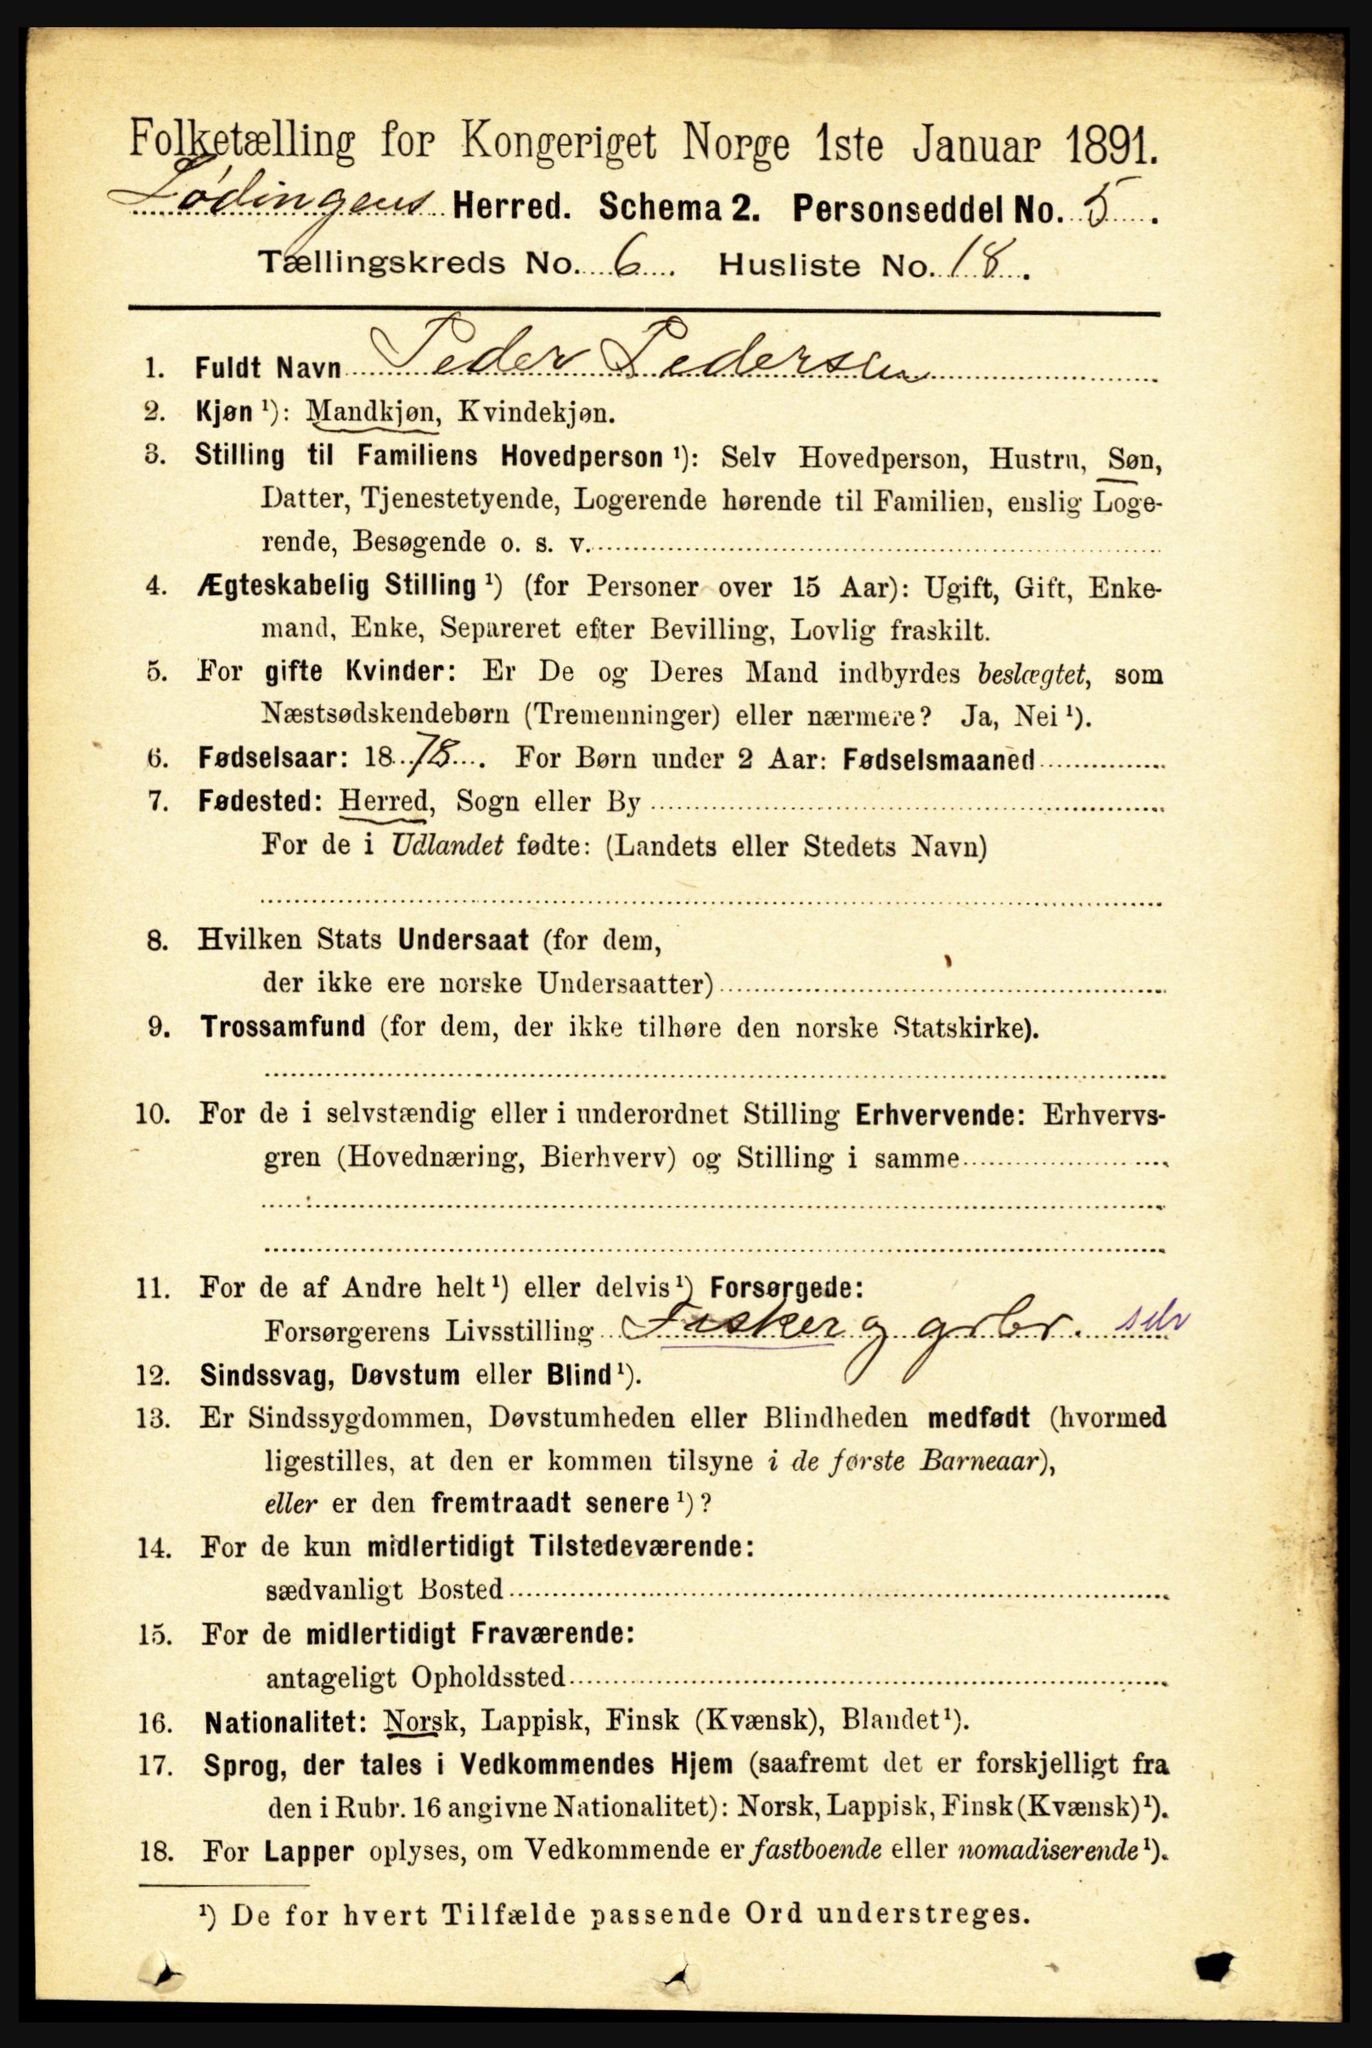 Folketælling for Kongeriget Norge 1ste Januar 1891.
Lødingens Herred. Schema 2. Personseddel No. 5.
Tællingskreds No. 6. Husliste No. 18.
1. Fuldt Navn Peder Pedersen
2. Kjøn ¹): Mandkjøn, Kvindekjøn.
3. Stilling til Familiens Hovedperson ¹): Selv Hovedperson, Hustru, Søn,
Datter, Tjenestetyende, Logerende hørende til Familien, enslig Loge-
rende, Besøgende o. s. v.
4. Ægteskabelig Stilling ¹) (for Personer over 15 Aar): Ugift, Gift, Enke-
mand, Enke, Separeret efter Bevilling, Lovlig fraskilt.
5. For gifte Kvinder: Er De og Deres Mand indbyrdes beslægtet, som
Næstsødskendebørn (Tremenninger) eller nærmere? Ja, Nei ¹).
6. Fødselsaar: 1878. For Børn under 2 Aar: Fødselsmaaned
7. Fødested: Herred, Sogn eller By
For de i Udlandet fødte: (Landets eller Stedets Navn)
8. Hvilken Stats Undersaat (for dem,
der ikke ere norske Undersaatter)
9. Trossamfund (for dem, der ikke tilhøre den norske Statskirke).
10. For de i selvstændig eller i underordnet Stilling Erhvervende: Erhvervs-
gren (Hovednæring, Bierhverv) og Stilling i samme
11. For de af Andre helt ¹) eller delvis ¹) Forsørgede:
Forsørgerens Livsstilling Fisker og grbr. selv
12. Sindssvag, Døvstum eller Blind ¹).
13. Er Sindssygdommen, Døvstumheden eller Blindheden medfødt (hvormed
ligestilles, at den er kommen tilsyne i de første Barneaar),
eller er den fremtraadt senere ¹)?
14. For de kun midlertidigt Tilstedeværende:
sædvanligt Bosted
15. For de midlertidigt Fraværende:
antageligt Opholdssted
16. Nationalitet: Norsk, Lappisk, Finsk (Kvænsk), Blandet ¹).
17. Sprog, der tales i Vedkommendes Hjem (saafremt det er forskjelligt fra
den i Rubr. 16 angivne Nationalitet): Norsk, Lappisk, Finsk (Kvænsk) ¹).
18. For Lapper oplyses, om Vedkommende er fastboende eller nomadiserende ¹).
¹) De for hvert Tilfælde passende Ord understreges.